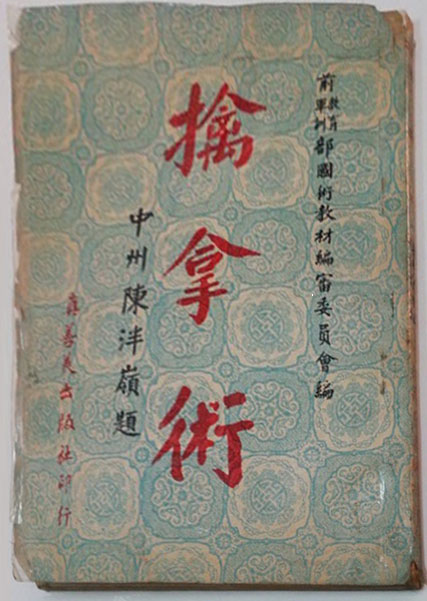 前教育軍訓部國術教材編審委員會編
擒拿術
中州陳泮嶺題
真善美出版社印行